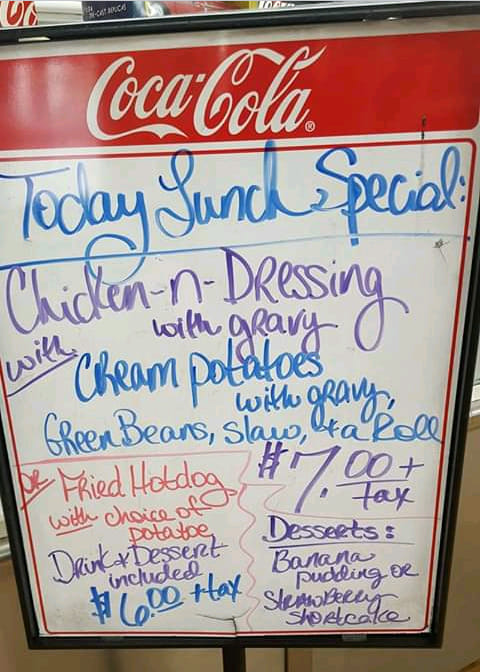 DIE-CAST REPLICAS
Coca-Cola®
Today Lunch Special:
Chicken-n-Dressing
with gravy
with
Cream potatoes
with gravy,
Green Beans, slaw, + a Roll
$7.00 +
Tax
OR Fried Hotdog
with choice of
potatoe
Drink + Dessert
included
$6.00 + tax
Desserts:
Banana
pudding or
Strawberry
shortcake